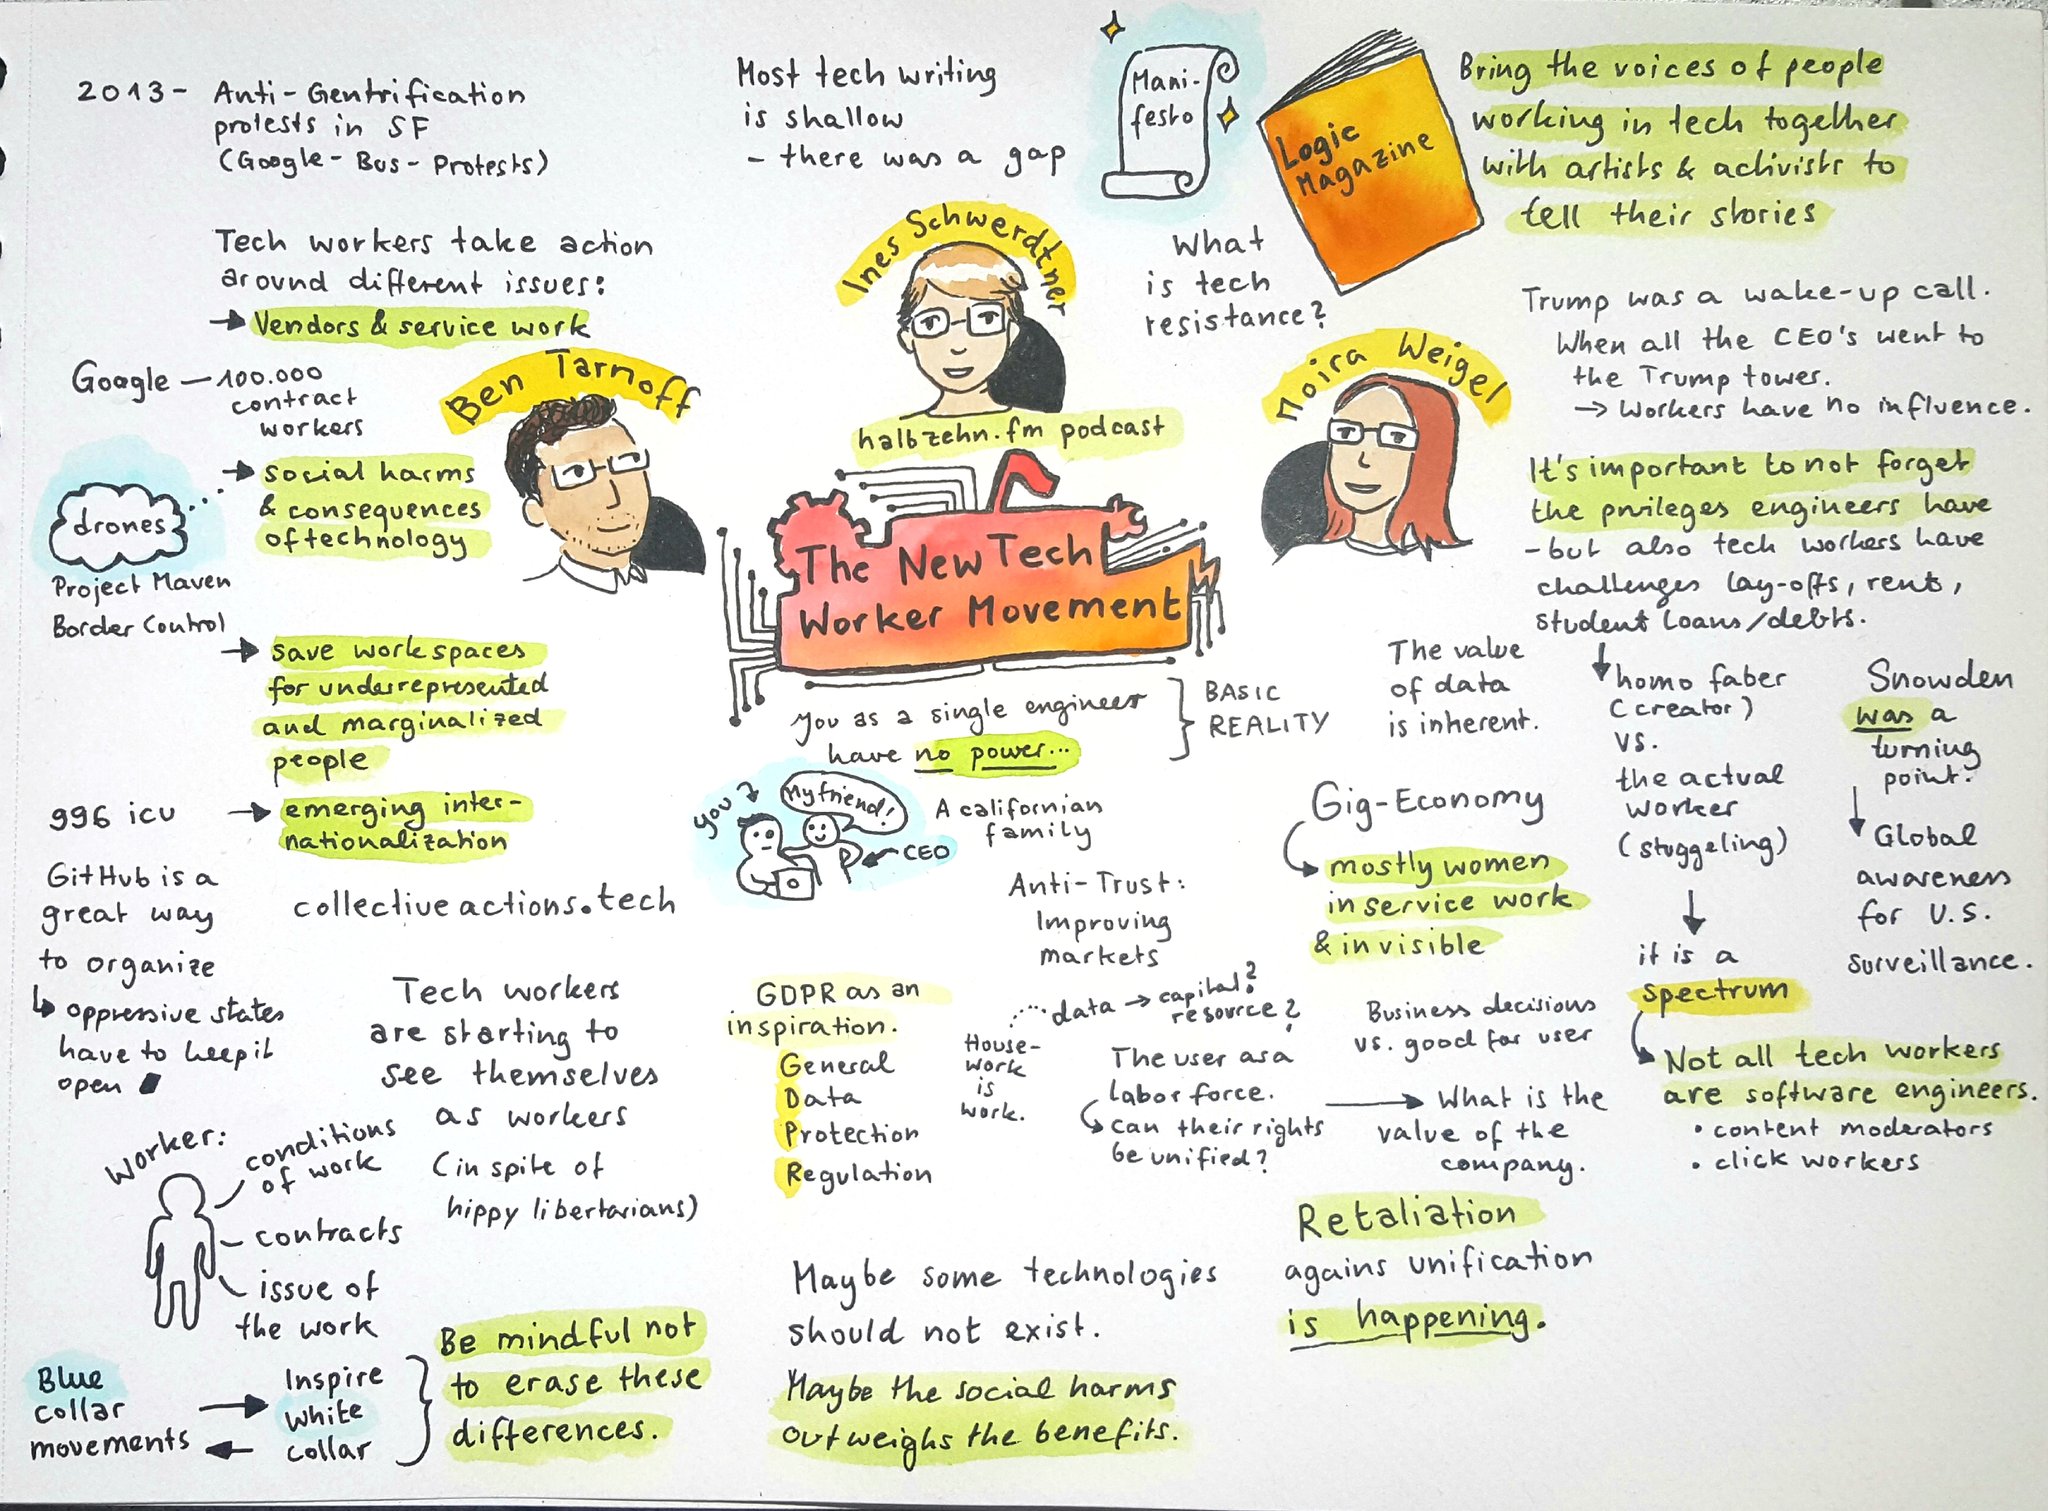 2013 - Anti-Gentrification
protests in SF
(Google-Bus-Protests)
Tech workers take action
around different issues:
→ Vendors & service work
Google — 100.000
contract
workers
→ social harms
& consequences
of technology
drones
Project Maven
Border Control
→ save workspaces
for underrepresented
and marginalized
people
996 icu → emerging inter-
nationalization
GitHub is a
great way
to organize
↳ oppressive states
have to keep it
open
collectiveactions.tech
Tech workers
are starting to
see themselves
as workers
(in spite of
hippy libertarians)
Worker:
conditions
of work
contracts
issue of
the work
Blue
collar
movements
Inspire
white
collar
Be mindful not
to erase these
differences.
Most tech writing
is shallow
- there was a gap
Mani-
festo
Logic
Magazine
Bring the voices of people
working in tech together
with artists & activists to
tell their stories
Ben Tarnoff
Ines Schwerdtner
halbzehn.fm podcast
What
is tech
resistance?
Moira Weigel
The New Tech
Worker Movement
you as a single engineer
have no power...
BASIC
REALITY
you
My friend!
CEO
A californian
family
Anti-Trust:
Improving
markets
GDPR as an
inspiration.
General
Data
Protection
Regulation
House-
work
is
work.
data → capital?
resource?
The user as a
labor force.
↳ can their rights
be unified?
→ What is the
value of the
company.
Business decisions
vs. good for user
Maybe some technologies
should not exist.
Maybe the social harms
outweighs the benefits.
Trump was a wake-up call.
When all the CEO's went to
the Trump tower.
→ Workers have no influence.
It's important to not forget
the privileges engineers have
- but also tech workers have
challenges lay-offs, rent,
student loans/debts.
The value
of data
is inherent.
homo faber
(creator)
vs.
the actual
worker
(stuggeling)
it is a
spectrum
Not all tech workers
are software engineers.
• content moderators
• click workers
Snowden
was a
turning
point.
Global
awareness
for U.S.
surveillance.
Gig-Economy
mostly women
in service work
& invisible
Retaliation
agains unification
is happening.